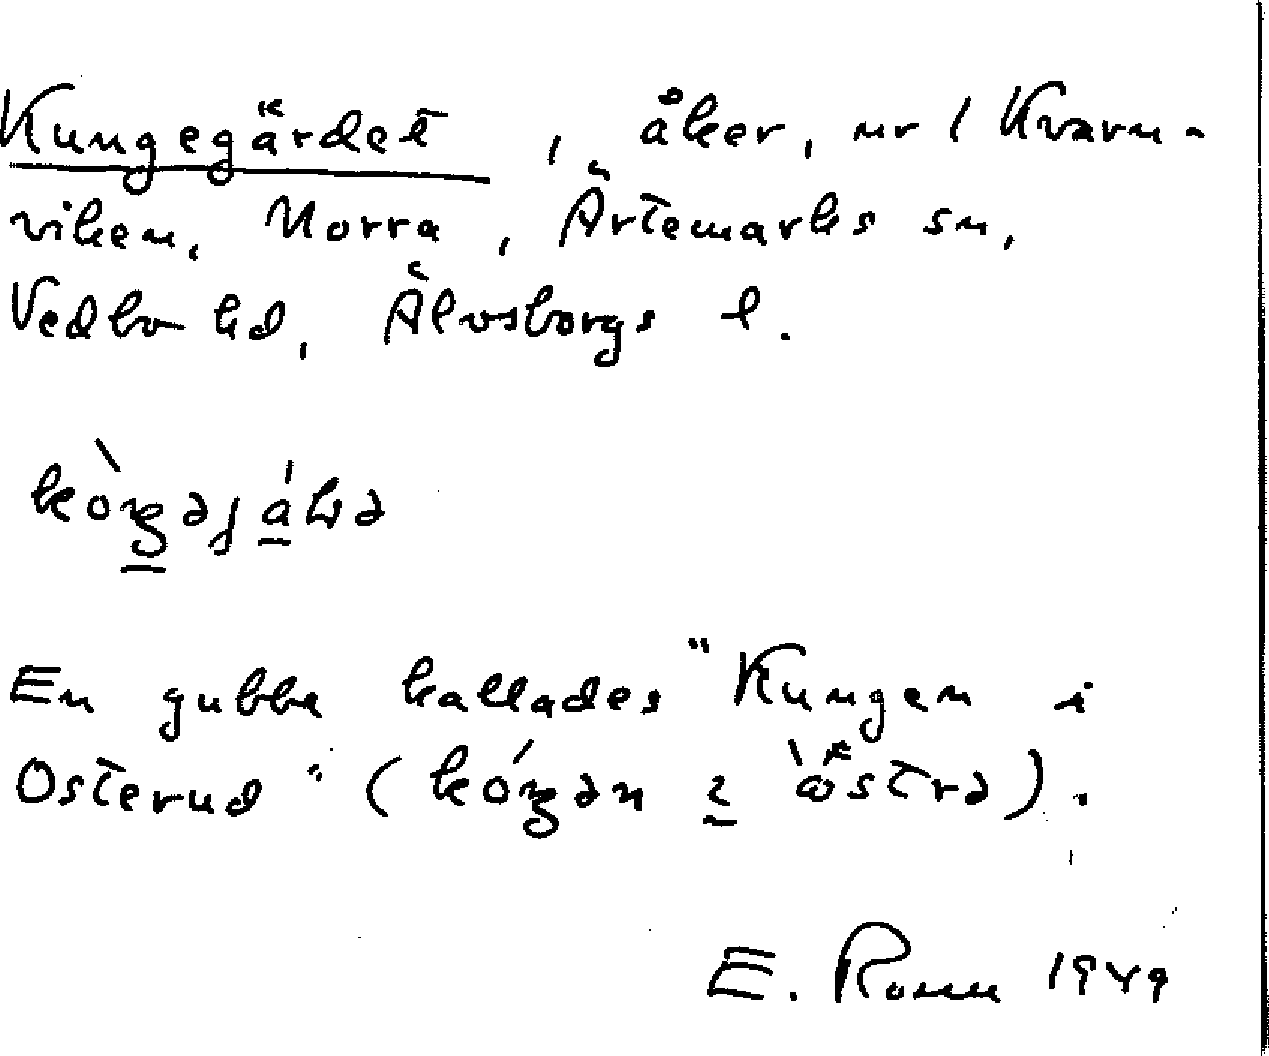 Kungegärdet, åker, nr 1 Kvarn-
viken, Norra, Ärtemarks sn,
Vedbo hd, Älvsborgs l.
En gubbe kallades "Kungen i
Osterud" (
E. Ronn 1949